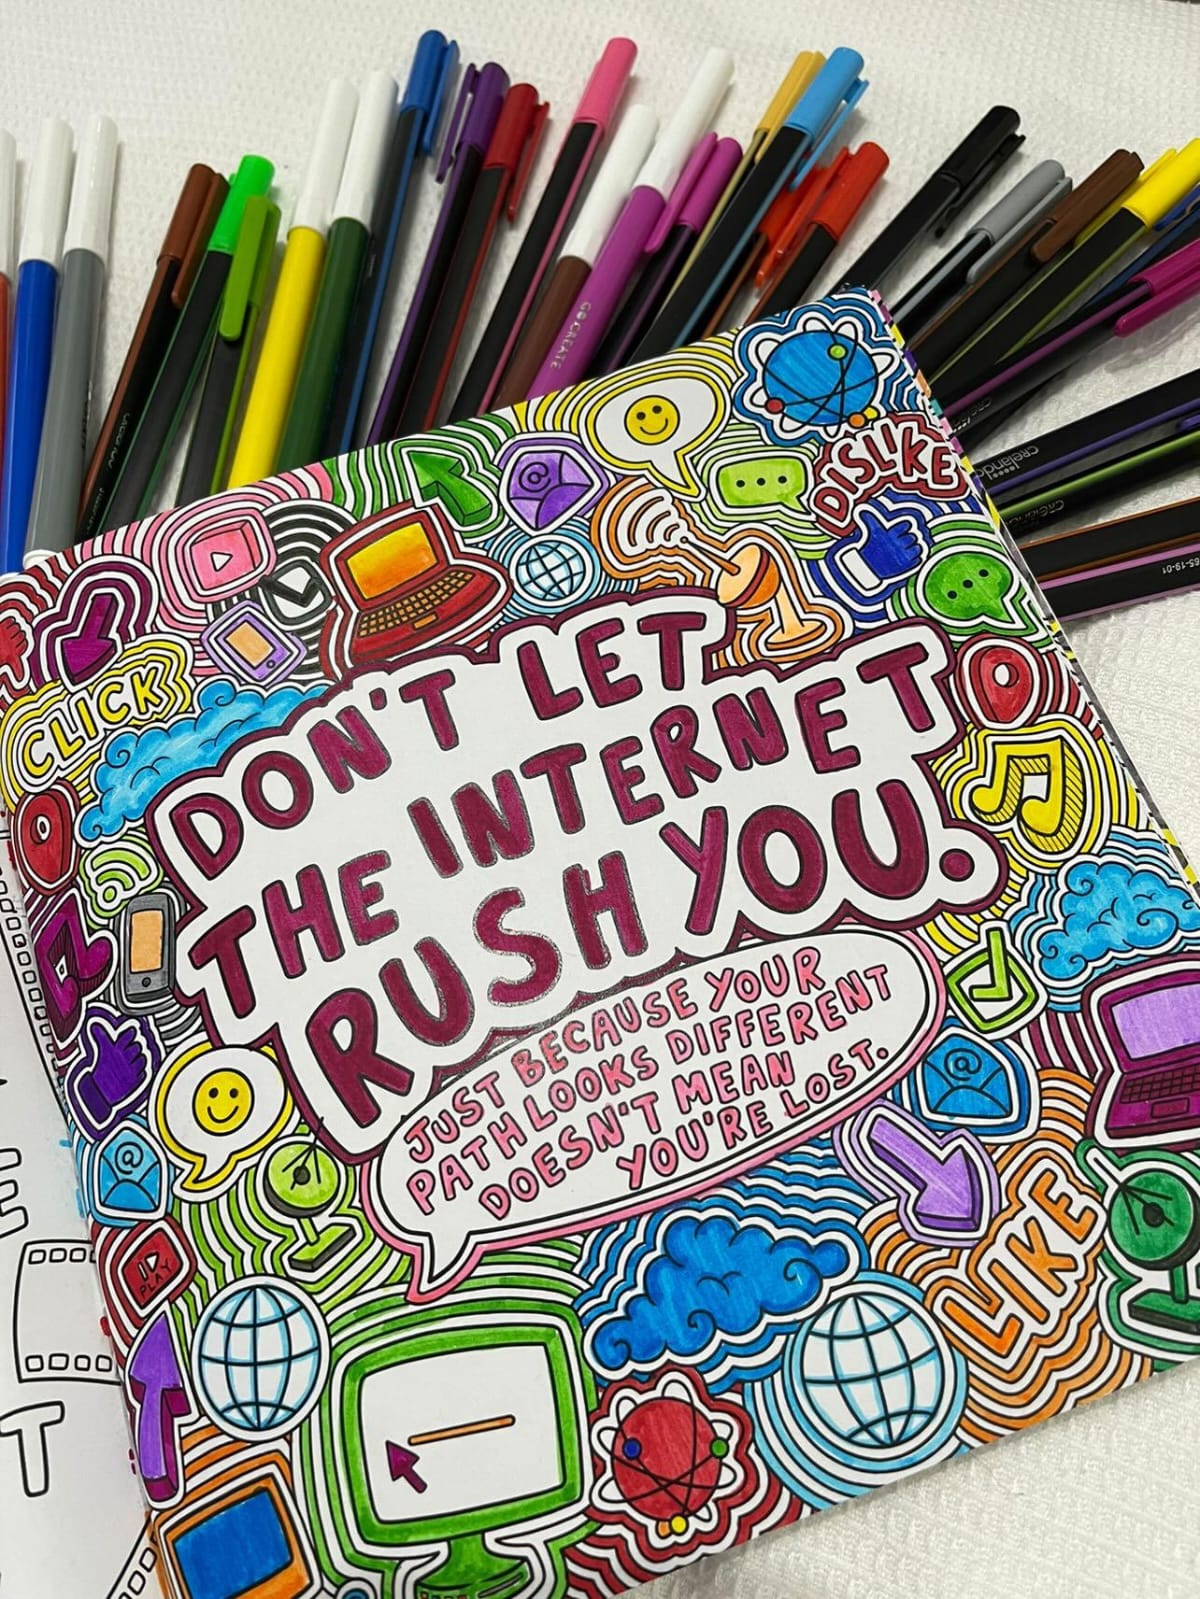 GOCREATE
crelando
65-19-01
DISLIKE
@
CLICK
DON'T LET
THE INTERNET
RUSH YOU.
JUST BECAUSE YOUR
PATH LOOKS DIFFERENT
DOESN'T MEAN
YOU'RE LOST.
@
@
PLAY
LIKE
E
T